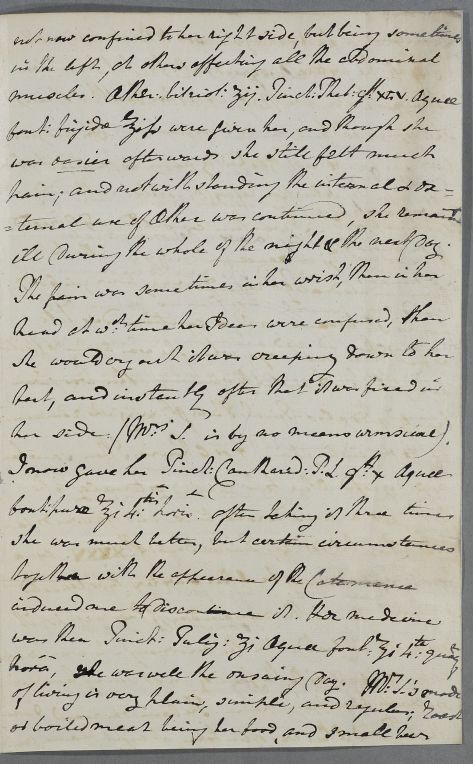 not now confined to her right side, but being sometimes
in the left, at others affecting all the abdominal
muscles. Æther: vitriol: ʒij. Tinct: Theb: gtt. xxv. Aquæ
font: frigidæ ʒiss were given her, and though she
was easier afterwards she still felt much
pain; and notwithstanding the internal & ex=
=ternal use of Æther was continued, she remained
ill during the whole of the night & the next day.
The pain was sometimes in her wrist, then in her
head at wch. time her Ideas were confused, then
she would cry out it was creeping down to her
feet, and instantly after that it was fixed in
her side. (Mrs. S. is by no means whimsical).
I now gave her Tinct: Canthared: P.L. gtt. x Aquæ
font: puræ ʒi 4tis horis. after taking it three times
she was much better, but certain circumstances
together with the appearance of the Catamenia
induced me to discontinue it. Her medicine
was then Tinct: Fulig: ʒi Aquæ font: ʒi 4th quaq
horâ, she was well the ensuing day. Mrs. S's mode
of living is very plain, simple, and regular; roast
or boiled meat being her food, and small beer